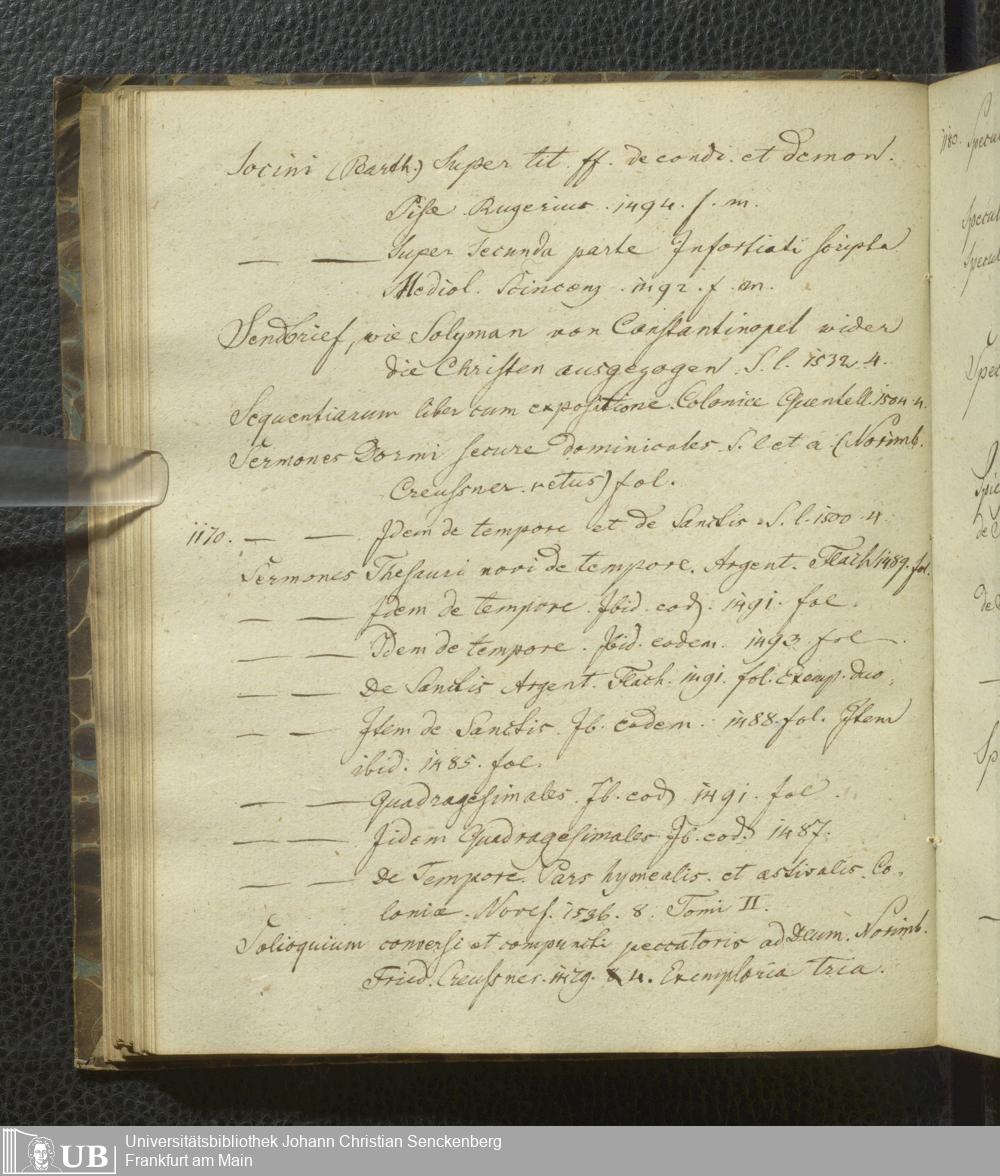 Socini (Barth.) Super tit. ff. de condi. et demon.
Pise Rugerius . 1494. f. m.
— — Super Secunda parte Infortiati scripta
Mediol. Scincenz . 1492. f. m.
Sendbrief, wie Solyman von Constantinopel wider
die Christen ausgezogen. S. l. 1532. 4.
Sequentiarum liber cum expositione. Colonice Quentell. 1504. 4.
Sermones Dormi secure dominicales. S. l. et a. (Norimb.
Creussner. vetus) fol.
1170. — — Idem de tempore et de Sanctis. S. l. 1500. 4.
Sermones Thesauri novi de tempore. Argent. Flach 1489. fol.
— — Idem de tempore. Ibid. eod. 1491. fol.
— — Idem de tempore. Ibid. eodem. 1493. fol.
— — De Sanctis Argent. Flach. 1491. fol. Exemp. duo.
— — Item de Sanctis. Ib. eodem. 1488. fol. Item
ibid. 1485. fol.
— — Quadragesimales. Ib. eod. 1491. fol.
— — Iidem Quadragesimales Ib. eod. 1487.
— — de Tempore. Pars hymealis et aestivalis. Co-
loniae. Noves. 1536. 8. Tomi II.
Solioquium conversi et compuncti peccatoris ad Deum. Norimb.
Fried. Creussner. 1479. 4. Exemplaria tria.
1180.
UB
Universitätsbibliothek Johann Christian Senckenberg
Frankfurt am Main